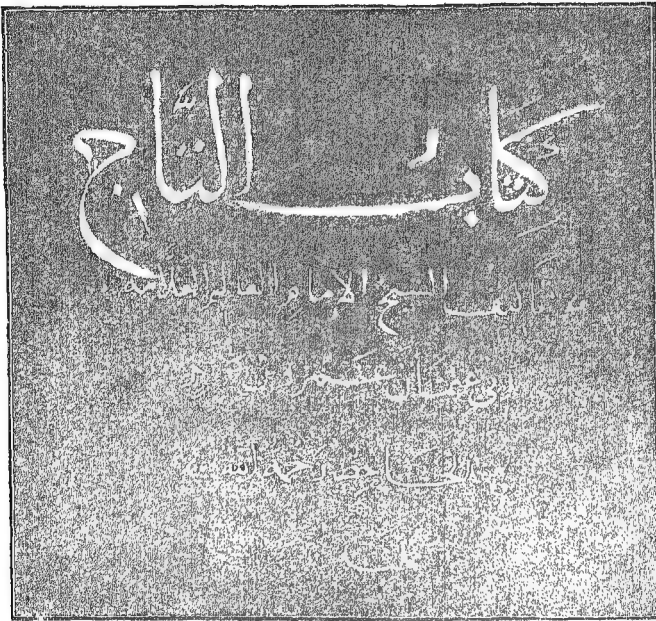 كتاب التاج
تأليف الشيخ الإمام العالم العلامة
أبي عثمان عمرو بن
الجاحظ رحمه الله